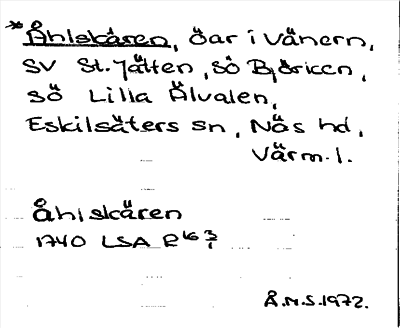 *Åhlskären, öar i Vänern,
SV St. Jälten, SÖ Björken,
SÖ Lilla Älvalen,
Eskilsäters sn, Näs hd,
Värm. l.
Åhlskären
1740 LSA R16 3/1
Å.N.S. 1972.